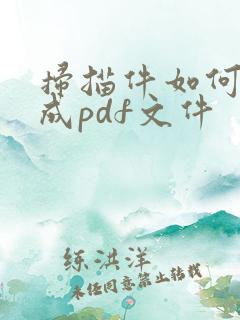 扫描件如何
成pdf文件
练洪洋
未经同意禁止转载